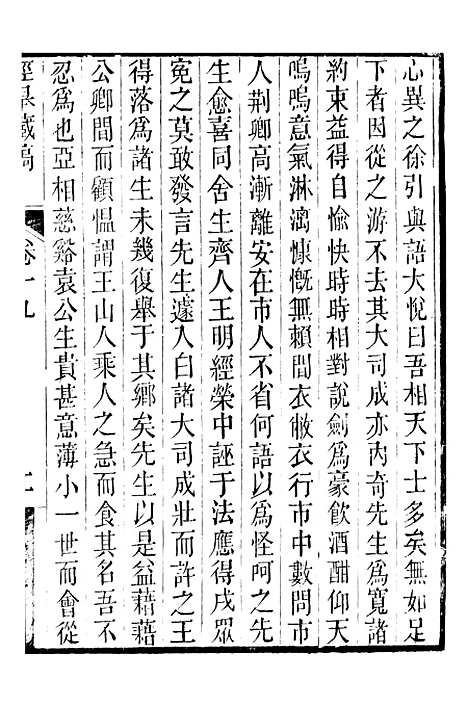 心異之徐引與語大悅曰吾相天下士多矣無如足
下者因從之游不去其大司成亦內奇先生爲寬諸
約束益得自愉快時時相對說劍爲豪飲酒酣仰天
嗚嗚意氣淋漓慷慨無賴間衣敝衣行市中數問市
人荆卿高漸離安在市人不省何語以爲怪呵之先
生愈喜同舍生齊人王明經榮中誣于法應得戌眾
寃之莫敢發言先生遽入白諸大司成壯而許之王
得落爲諸生未幾復舉于其鄉矣先生以是益藉藉
公卿間而顧愠謂王山人乘人之急而食其名吾不
忍爲也亞相慈谿袁公生貴甚意薄小一世而會從
藏稿
卷十九
二